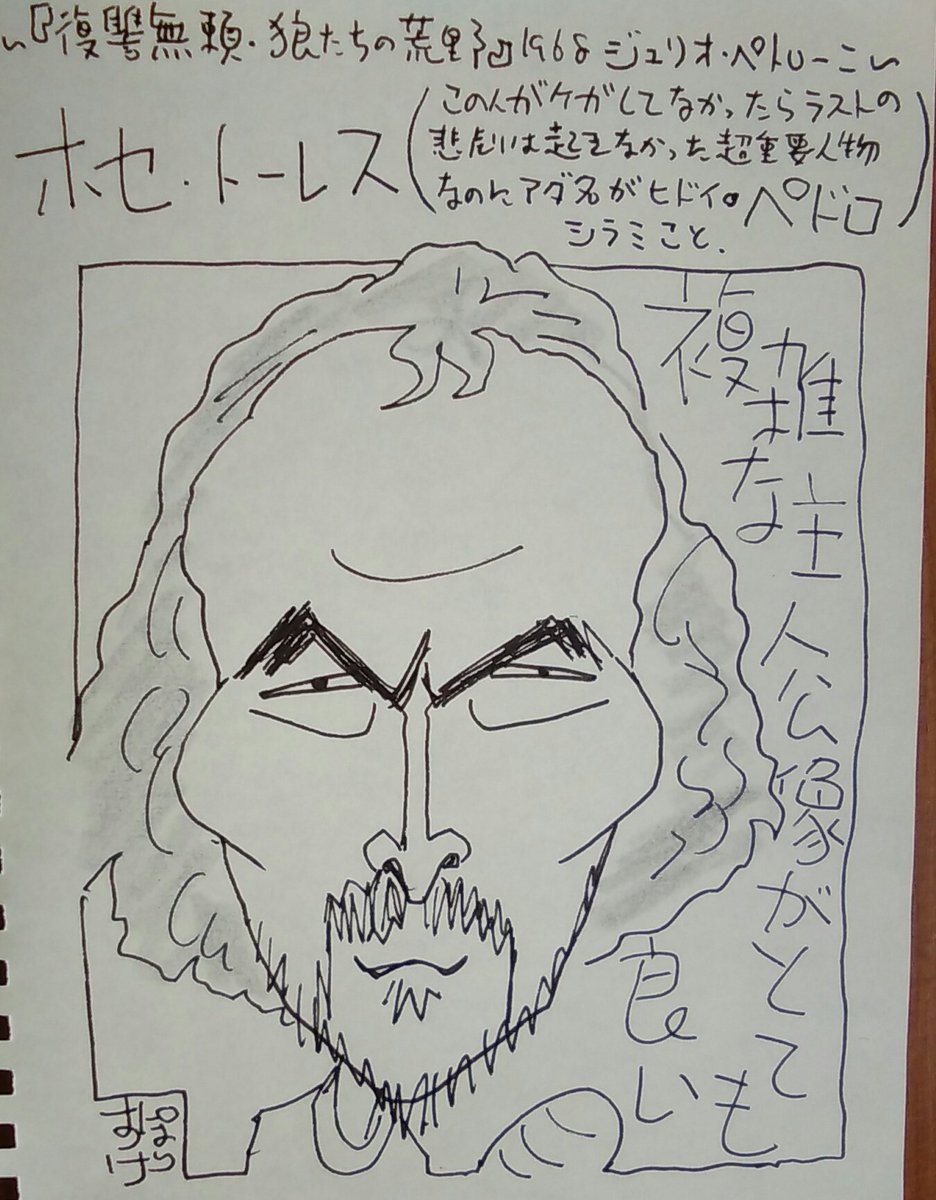 『復讐無頼・狼たちの荒野』1968 ジュリオ・ペトローニ
ホセ・トーレス
(この人がケガしてなかったらラストの
悲劇は起きなかった超重要人物
なのにアダ名がヒドイ。ペドロ)
シラミこと、
複雑な主人公像がとても
良い